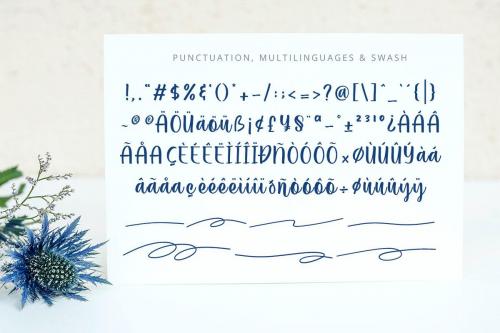 PUNCTUATION, MULTILINGUAGES & SWASH
!,."#$%&'()*+-/:;<=>?@[\]^_`´{|}
~©®ÄÖÜäöüß¡¢£¥§¨ª-°±²³¹º¿ÀÁÂ
ÃÅAÇÈÉÊËÌÍÎÏÐÑÒÓÔÕ×ØÙÚÛÝàá
âãåaçèéêëìíîïðñòóôõ÷øùúûýÿ